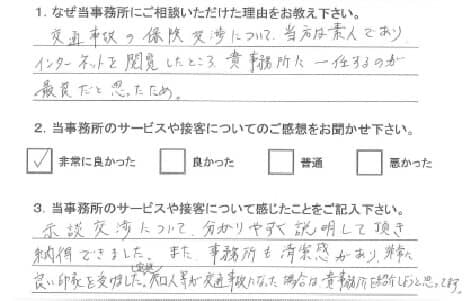 1. なぜ当事務所にご相談いただけた理由をお教え下さい。
交通事故の保険交渉について、当方は素人であり
インターネットを閲覧したところ貴事務所に一任するのが
最良だと思ったため。
2. 当事務所のサービスや接客についてのご感想をお聞かせ下さい。
✓ 非常に良かった 良かった 普通 悪かった
3. 当事務所のサービスや接客について感じたことをご記入下さい。
示談交渉について、分かりやすく説明して頂き
納得できました。また、事務所も清潔感があり、非常に
良い印象を受けました。知人等が交通事故になった場合は貴事務所を紹介しようと思ってます。